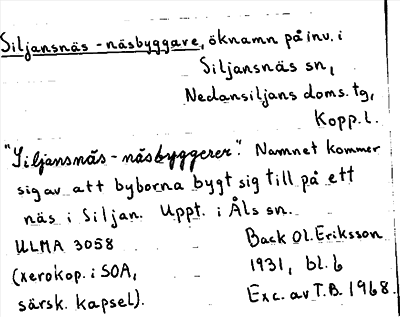 Siljansnäs-näsbyggare, öknamn på inv. i
Siljansnäs sn,
Nedansiljans doms. tg,
Kopp. l.
"Siljansnäs-näsbyggerer". Namnet kommer
sig av att byborna bygt sig till på ett
näs i Siljan. Uppt. i Åls sn.
ULMA 3058
(xerokop. i SOA,
särsk. kapsel).
Back Ol. Eriksson
1931, bl. 6
Exc. av T.B. 1968.